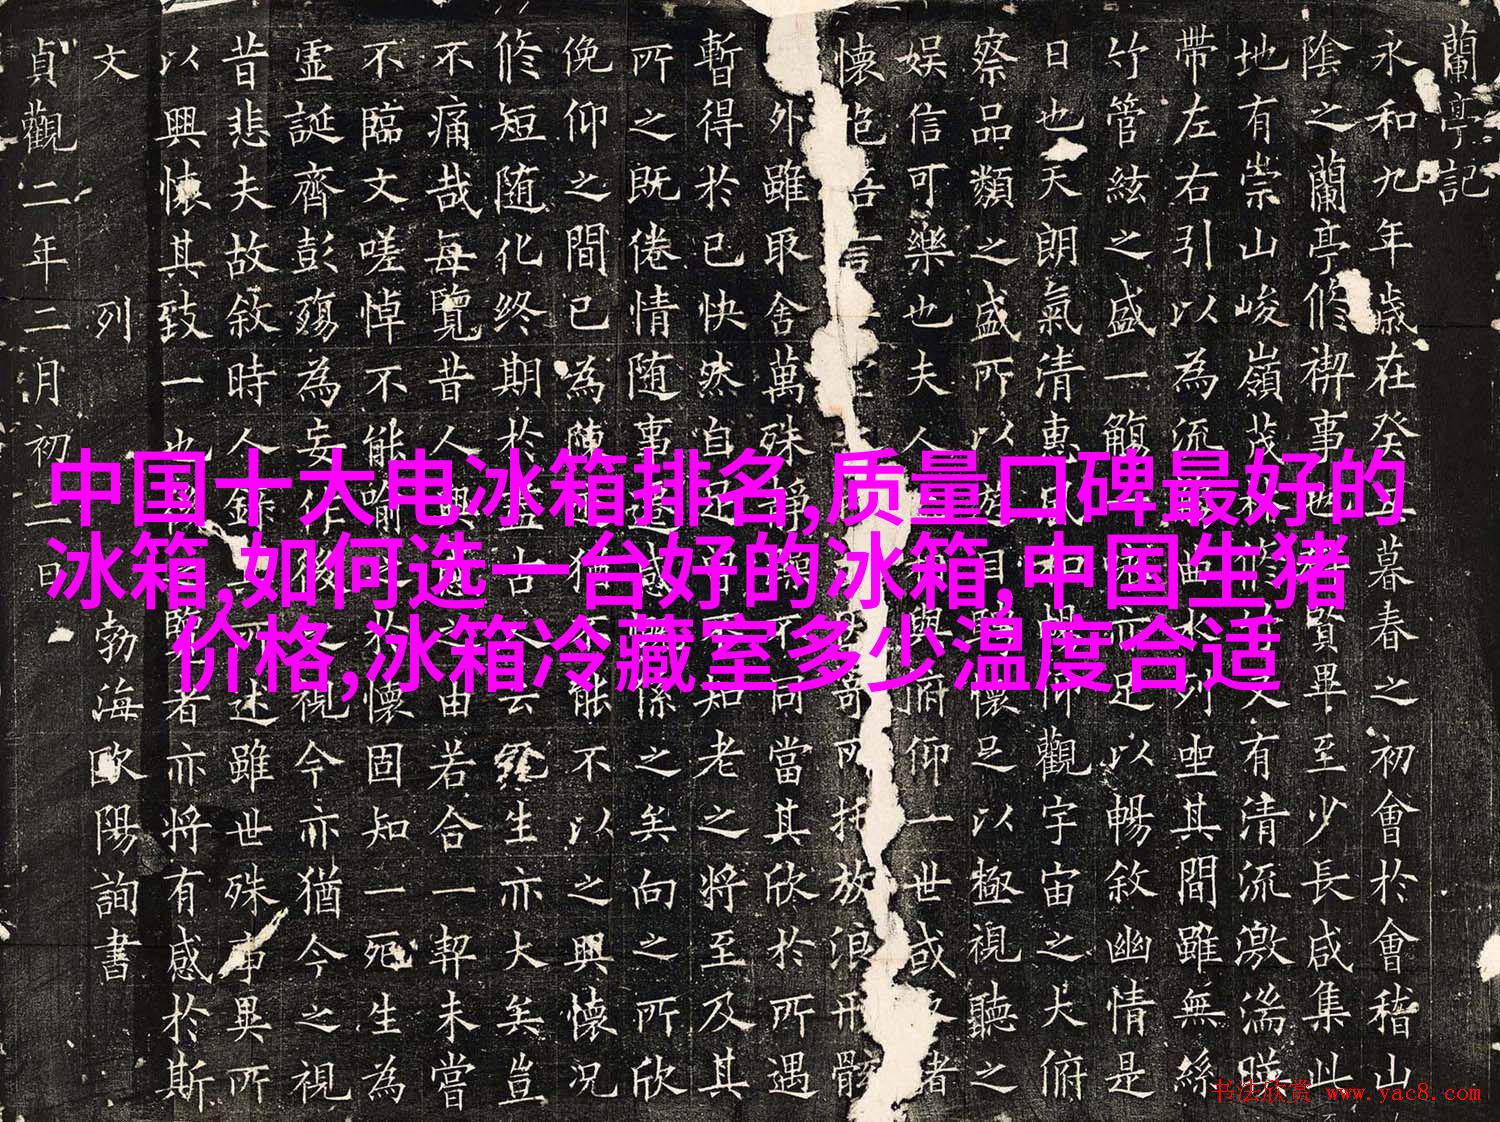 中国十大电冰箱排名,质量口碑最好的
冰箱,如何选一台好的冰箱,中国生猪
价格,冰箱冷藏室多少温度合适
蘭亭記
永和九年歳在癸暮春之初會於會稽山
陰之蘭亭修禊事賢畢至少長咸集此
地有崇山峻嶺茂有清流激湍暎
帶左右引以為流曲列坐其間雖無絲
竹管絃之盛一觴亦足以暢敘幽情是
日也天朗氣清惠仰觀宇宙之大俯
察品類之盛所以目懷足以極視聽之
娱信可樂也夫人與俯仰一世或諸
懷抱言寄所托放浪形骸
外雖取舍萬殊靜不同當其欣於所遇
暫得於已快然自足知老之將至及其
所之既倦情随事感係之矣向之所欣
俛仰之間已為陳猶能不以之興懷况
修短随化终期於古云死生亦大矣豈
不痛哉每覽昔人興由若合一契未嘗
不臨文嗟悼不能喻於懷固知一死生為
虛誕齊彭殤為妄作視今亦猶今之視
昔悲夫故敘時人錄所述雖世殊事異所
以興懷其致一也覽者亦将有感於斯
文 列 勃海歐陽詢書
貞觀二年二月初二日
书法欣赏 www.yac8.com